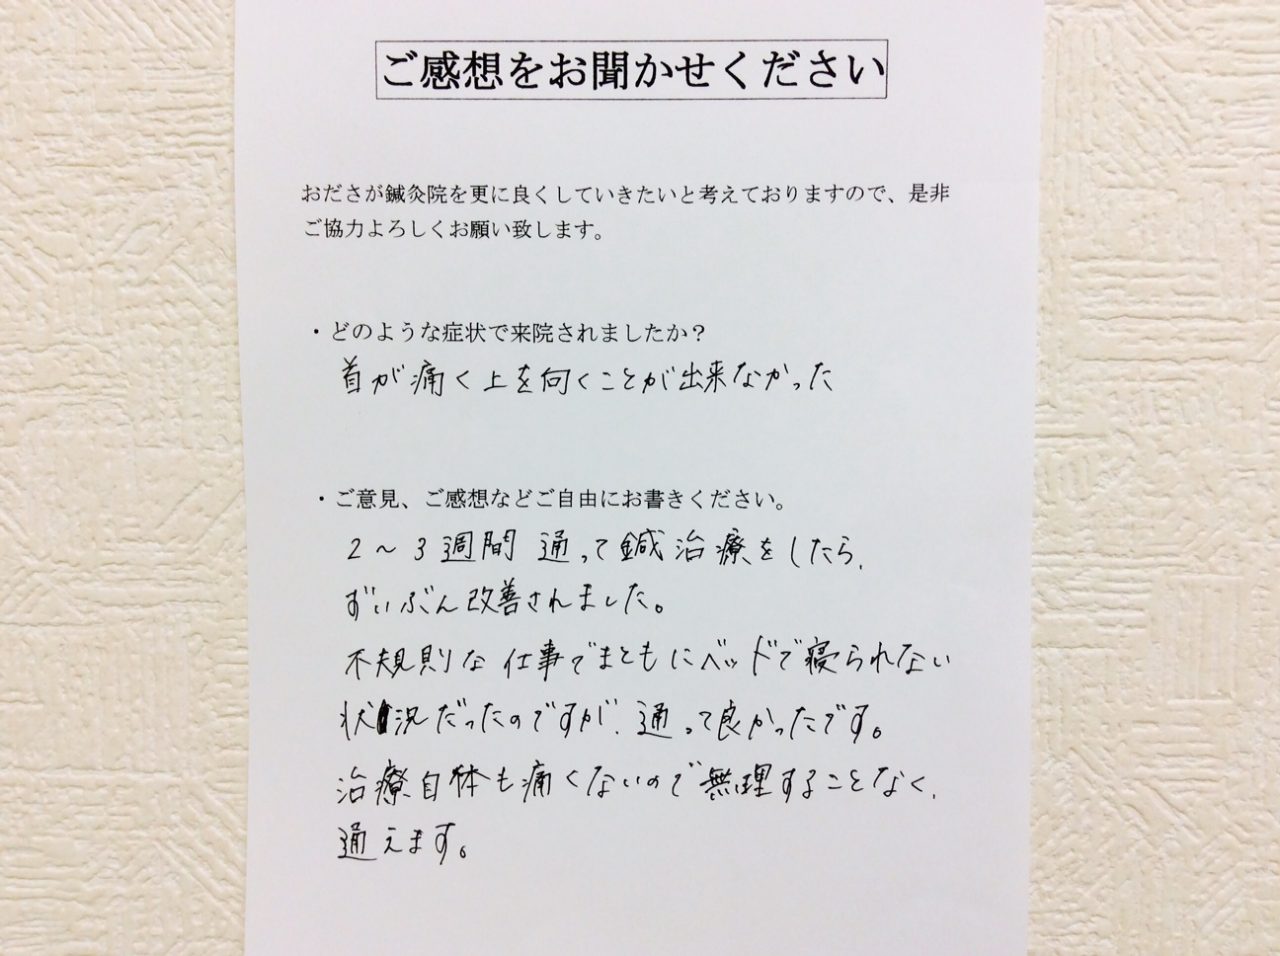 ご感想をお聞かせください
おださが鍼灸院を更に良くしていきたいと考えておりますので、是非
ご協力よろしくお願い致します。
・どのような症状で来院されましたか？
首が痛く上を向くことが出来なかった
・ご意見、ご感想などご自由にお書きください。
2～3週間 通って鍼治療をしたら、
ずいぶん改善されました。
不規則な仕事でまともにベッドで寝られない
状況だったのですが、通って良かったです。
治療自体も痛くないので無理することなく、
通えます。